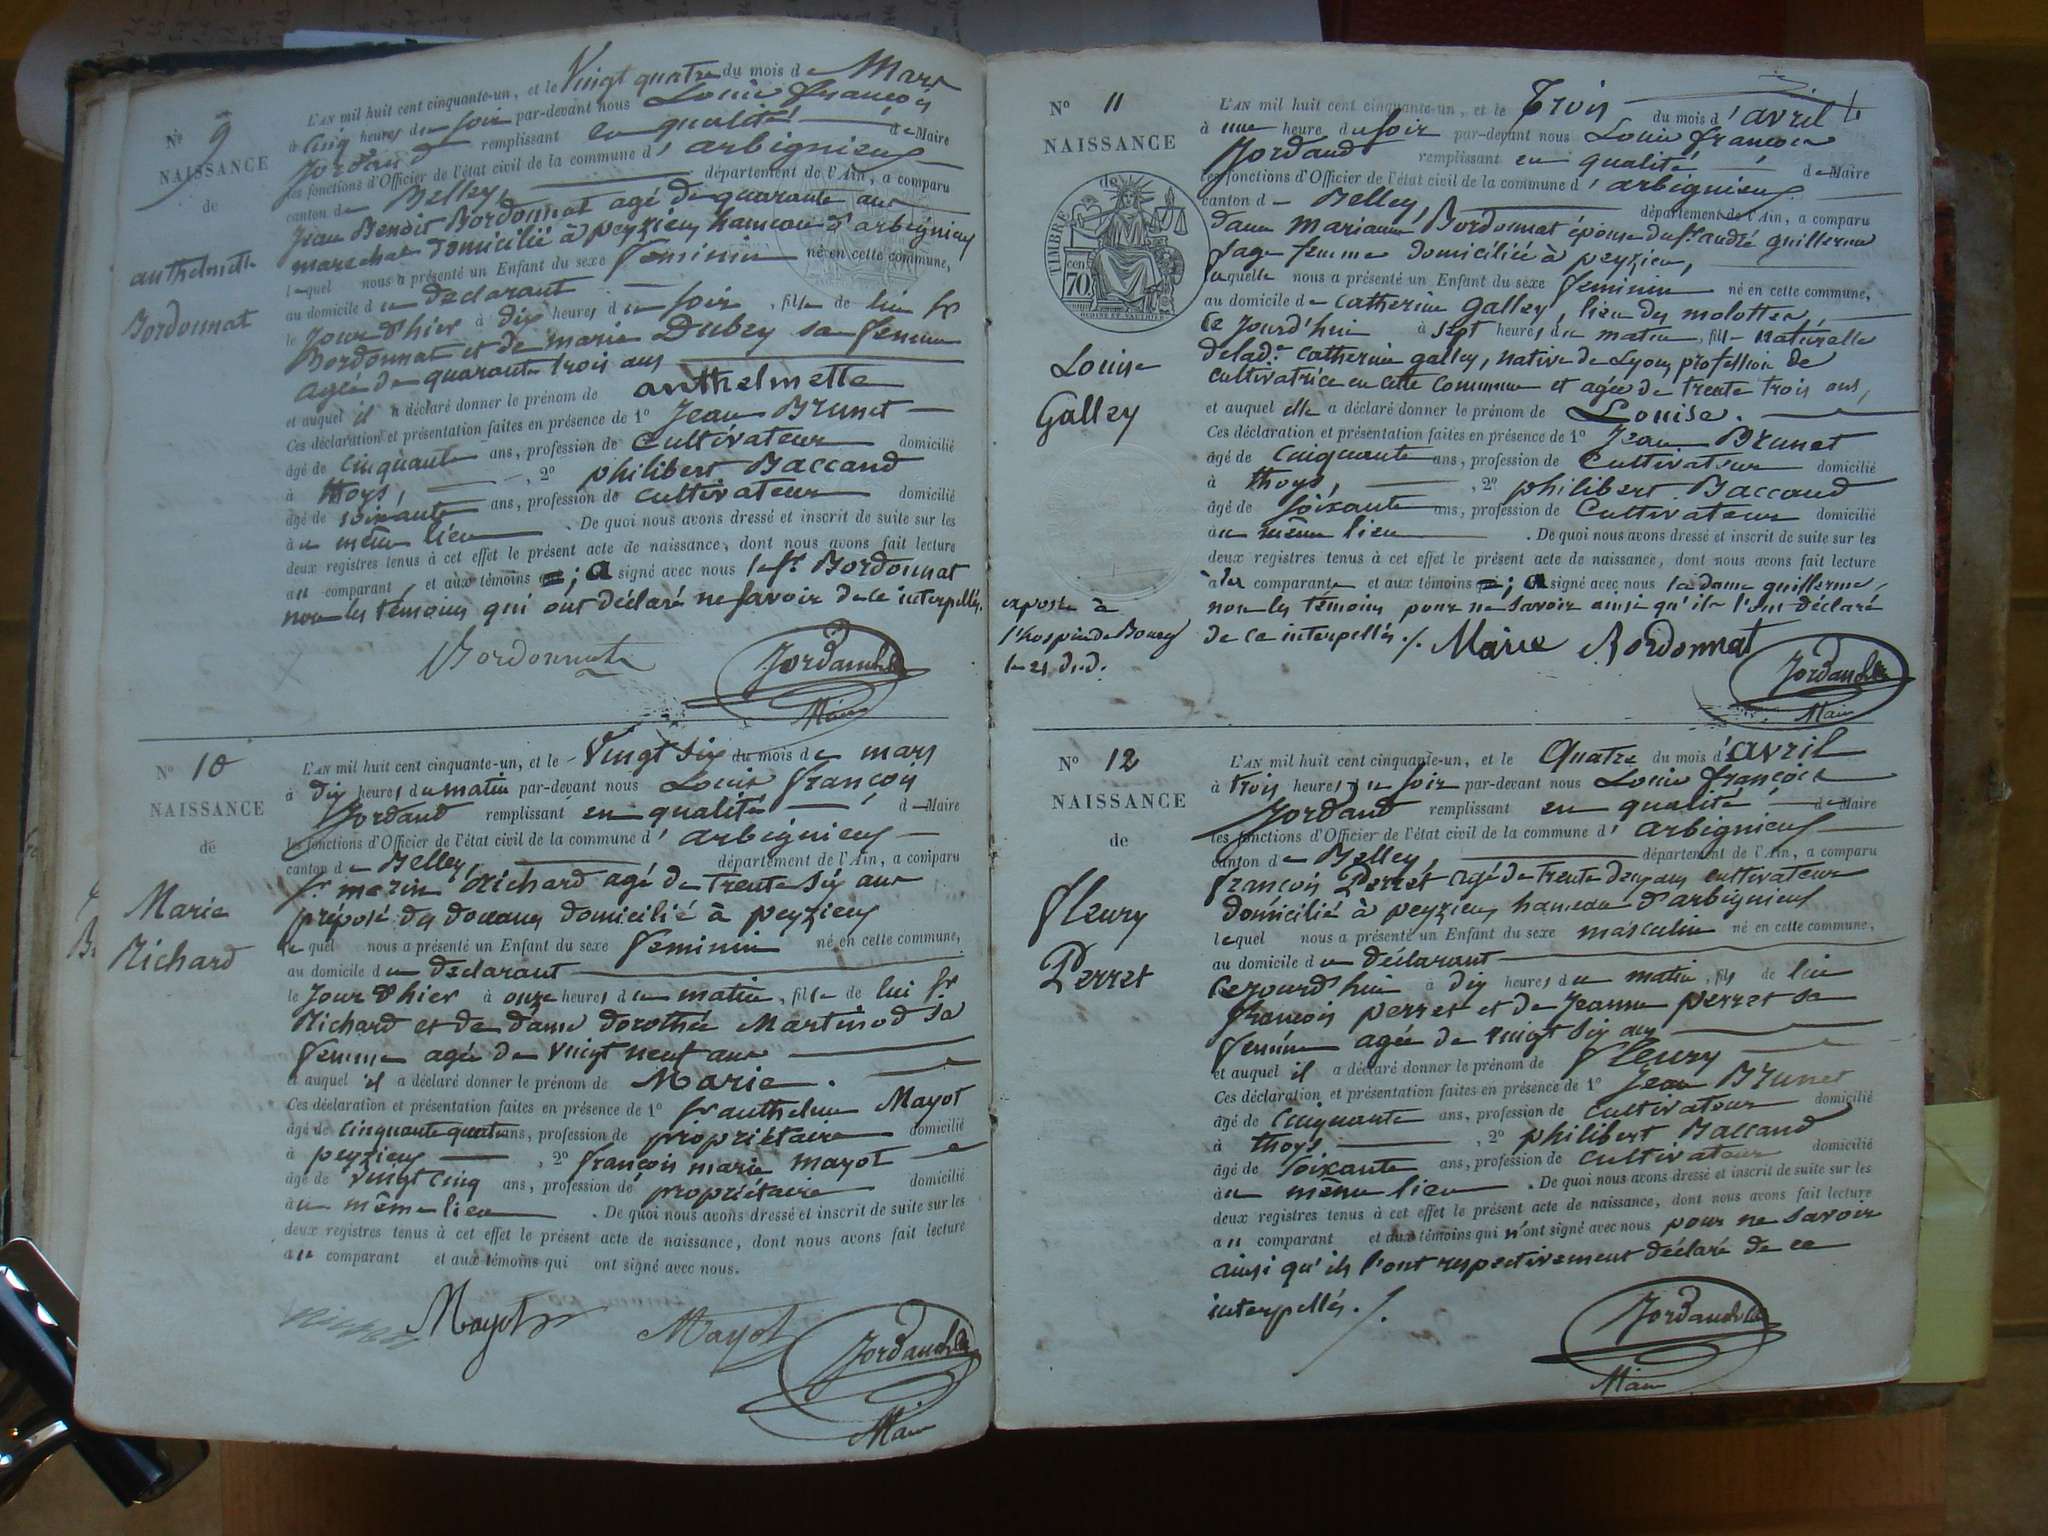 N° 9
NAISSANCE
de
anthelmette
Bordonnat
L'AN mil huit cent cinquante-un, et le Vingt quatre du mois de Mars
à cinq heures du soir par-devant nous Louis françois
Jordand remplissant en qualité de Maire
les fonctions d'Officier de l'état civil de la commune d'arbignieux
canton de Belley, département de l'Ain, a comparu
Jean Benoit Bordonnat agé de quarante ans
marechal domicilié à peyzieu hameau d'arbignieu
lequel nous a présenté un Enfant du sexe feminin né en cette commune,
au domicile du declarant
le Jour d'hier à dix heures du soir, fille de lui sr
Bordonnat et de marie Dubey sa femme
agée de quarante trois ans
et auquel il a déclaré donner le prénom de anthelmette
Ces déclaration et présentation faites en présence de 1° Jean Brunet
âgé de cinquante ans, profession de cultivateur domicilié
à thoys, , 2° philibert Baccand
âgé de soixante ans, profession de cultivateur domicilié
au même lieu . De quoi nous avons dressé et inscrit de suite sur les
deux registres tenus à cet effet le présent acte de naissance, dont nous avons fait lecture
au comparant, et aux témoins ; a signé avec nous le sr. Bordonnat
non les témoins qui ont déclaré ne savoir de ce interpellés.
Bordonnat
Jordand
Maire
N° 10
NAISSANCE
de
Marie
Richard
L'AN mil huit cent cinquante-un, et le Vingt six du mois de mars
à dix heures du matin par-devant nous Louis françois
Jordand remplissant en qualité de Maire
les fonctions d'Officier de l'état civil de la commune d'arbignieux
canton de Belley, département de l'Ain, a comparu
sr. Richard agé de trente six ans
préposé des douanes domicilié à peyzieu
lequel nous a présenté un Enfant du sexe feminin né en cette commune,
au domicile du declarant
le Jour d'hier à onze heures du matin, fille de lui sr
Richard et de dame dorothée Martinod sa
femme agée de vingt neuf ans
et auquel il a déclaré donner le prénom de Marie.
Ces déclaration et présentation faites en présence de 1° sr anthelme Mayot
âgé de cinquante quatre ans, profession de propriétaire domicilié
à peyzieu , 2° françois marie mayot
âgé de vingt cinq ans, profession de propriétaire domicilié
au même lieu . De quoi nous avons dressé et inscrit de suite sur les
deux registres tenus à cet effet le présent acte de naissance, dont nous avons fait lecture
au comparant et aux témoins qui ont signé avec nous.
Mayot Mayot
Jordand
Maire
N° 11
NAISSANCE
de
TIMBRE
cen 70
Louise
Galley
exposée à
l'hospice de Bourg
le 21 dud.
L'AN mil huit cent cinquante-un, et le Trois du mois d'avril
à une heure du soir par-devant nous Louis françois
Jordand remplissant en qualité de Maire
les fonctions d'Officier de l'état civil de la commune d'arbignieux
canton de Belley, département de l'Ain, a comparu
dame marianne Bordonnat épouse du sr. andré guillerme
sage femme domiciliée à peyzieu,
laquelle nous a présenté un Enfant du sexe feminin né en cette commune,
au domicile de Catherine galley, lieu des molottes,
ce Jourd'hui à sept heures du matin, fille naturelle
de lade. catherine galley, native de Lyon, profession de
cultivatrice en cette commune et agée de trente trois ans,
et auquel elle a déclaré donner le prénom de Louise.
Ces déclaration et présentation faites en présence de 1° Jean Brunet
âgé de cinquante ans, profession de cultivateur domicilié
à thoys, , 2° philibert Baccand
âgé de soixante ans, profession de cultivateur domicilié
au même lieu . De quoi nous avons dressé et inscrit de suite sur les
deux registres tenus à cet effet le présent acte de naissance, dont nous avons fait lecture
à la comparante et aux témoins ; a signé avec nous la dame guillerme,
non les témoins pour ne savoir ainsi qu'ils l'ont déclaré
de ce interpellés./. Marie Bordonnat
Jordand
Maire
N° 12
NAISSANCE
de
fleury
Perret
L'AN mil huit cent cinquante-un, et le Quatre du mois d'avril
à trois heures du soir par-devant nous Louis françois
Jordand remplissant en qualité de Maire
les fonctions d'Officier de l'état civil de la commune d'arbignieux
canton de Belley, département de l'Ain, a comparu
françois Perret agé de trente deux ans cultivateur
domicilié à peyzieu hameau d'arbignieux
lequel nous a présenté un Enfant du sexe masculin né en cette commune,
au domicile du déclarant
cejourd'hui à dix heures du matin, fils de lui
françois perret et de Jeanne perret sa
femme agée de vingt six ans
et auquel il a déclaré donner le prénom de fleury
Ces déclaration et présentation faites en présence de 1° Jean Brunet
âgé de cinquante ans, profession de cultivateur domicilié
à thoys , 2° philibert Baccand
âgé de soixante ans, profession de cultivateur domicilié
au même lieu . De quoi nous avons dressé et inscrit de suite sur les
deux registres tenus à cet effet le présent acte de naissance, dont nous avons fait lecture
au comparant et aux témoins qui n'ont signé avec nous pour ne savoir
ainsi qu'ils l'ont respectivement déclaré de ce
interpellés./.
Jordand
Maire